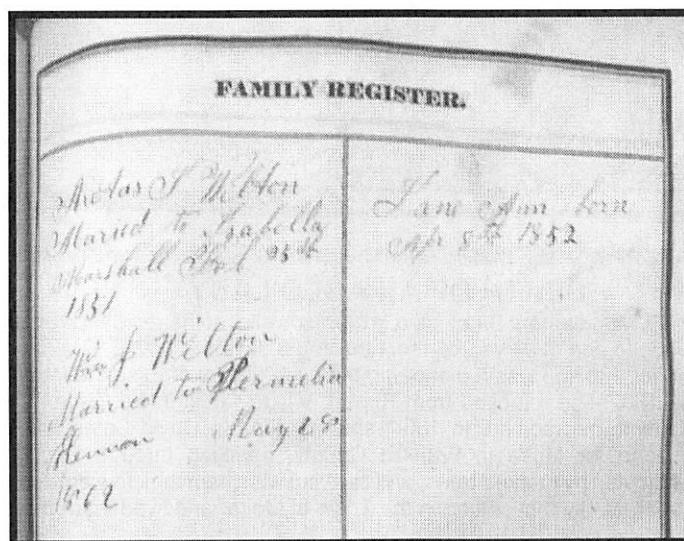 FAMILY REGISTER.
S Wilton
Married to Isabella
Marshall 25th
1851
Wm J Wilton
Married to Permelia
May 28
1862
Jane Ann born
Apr 8th 1852